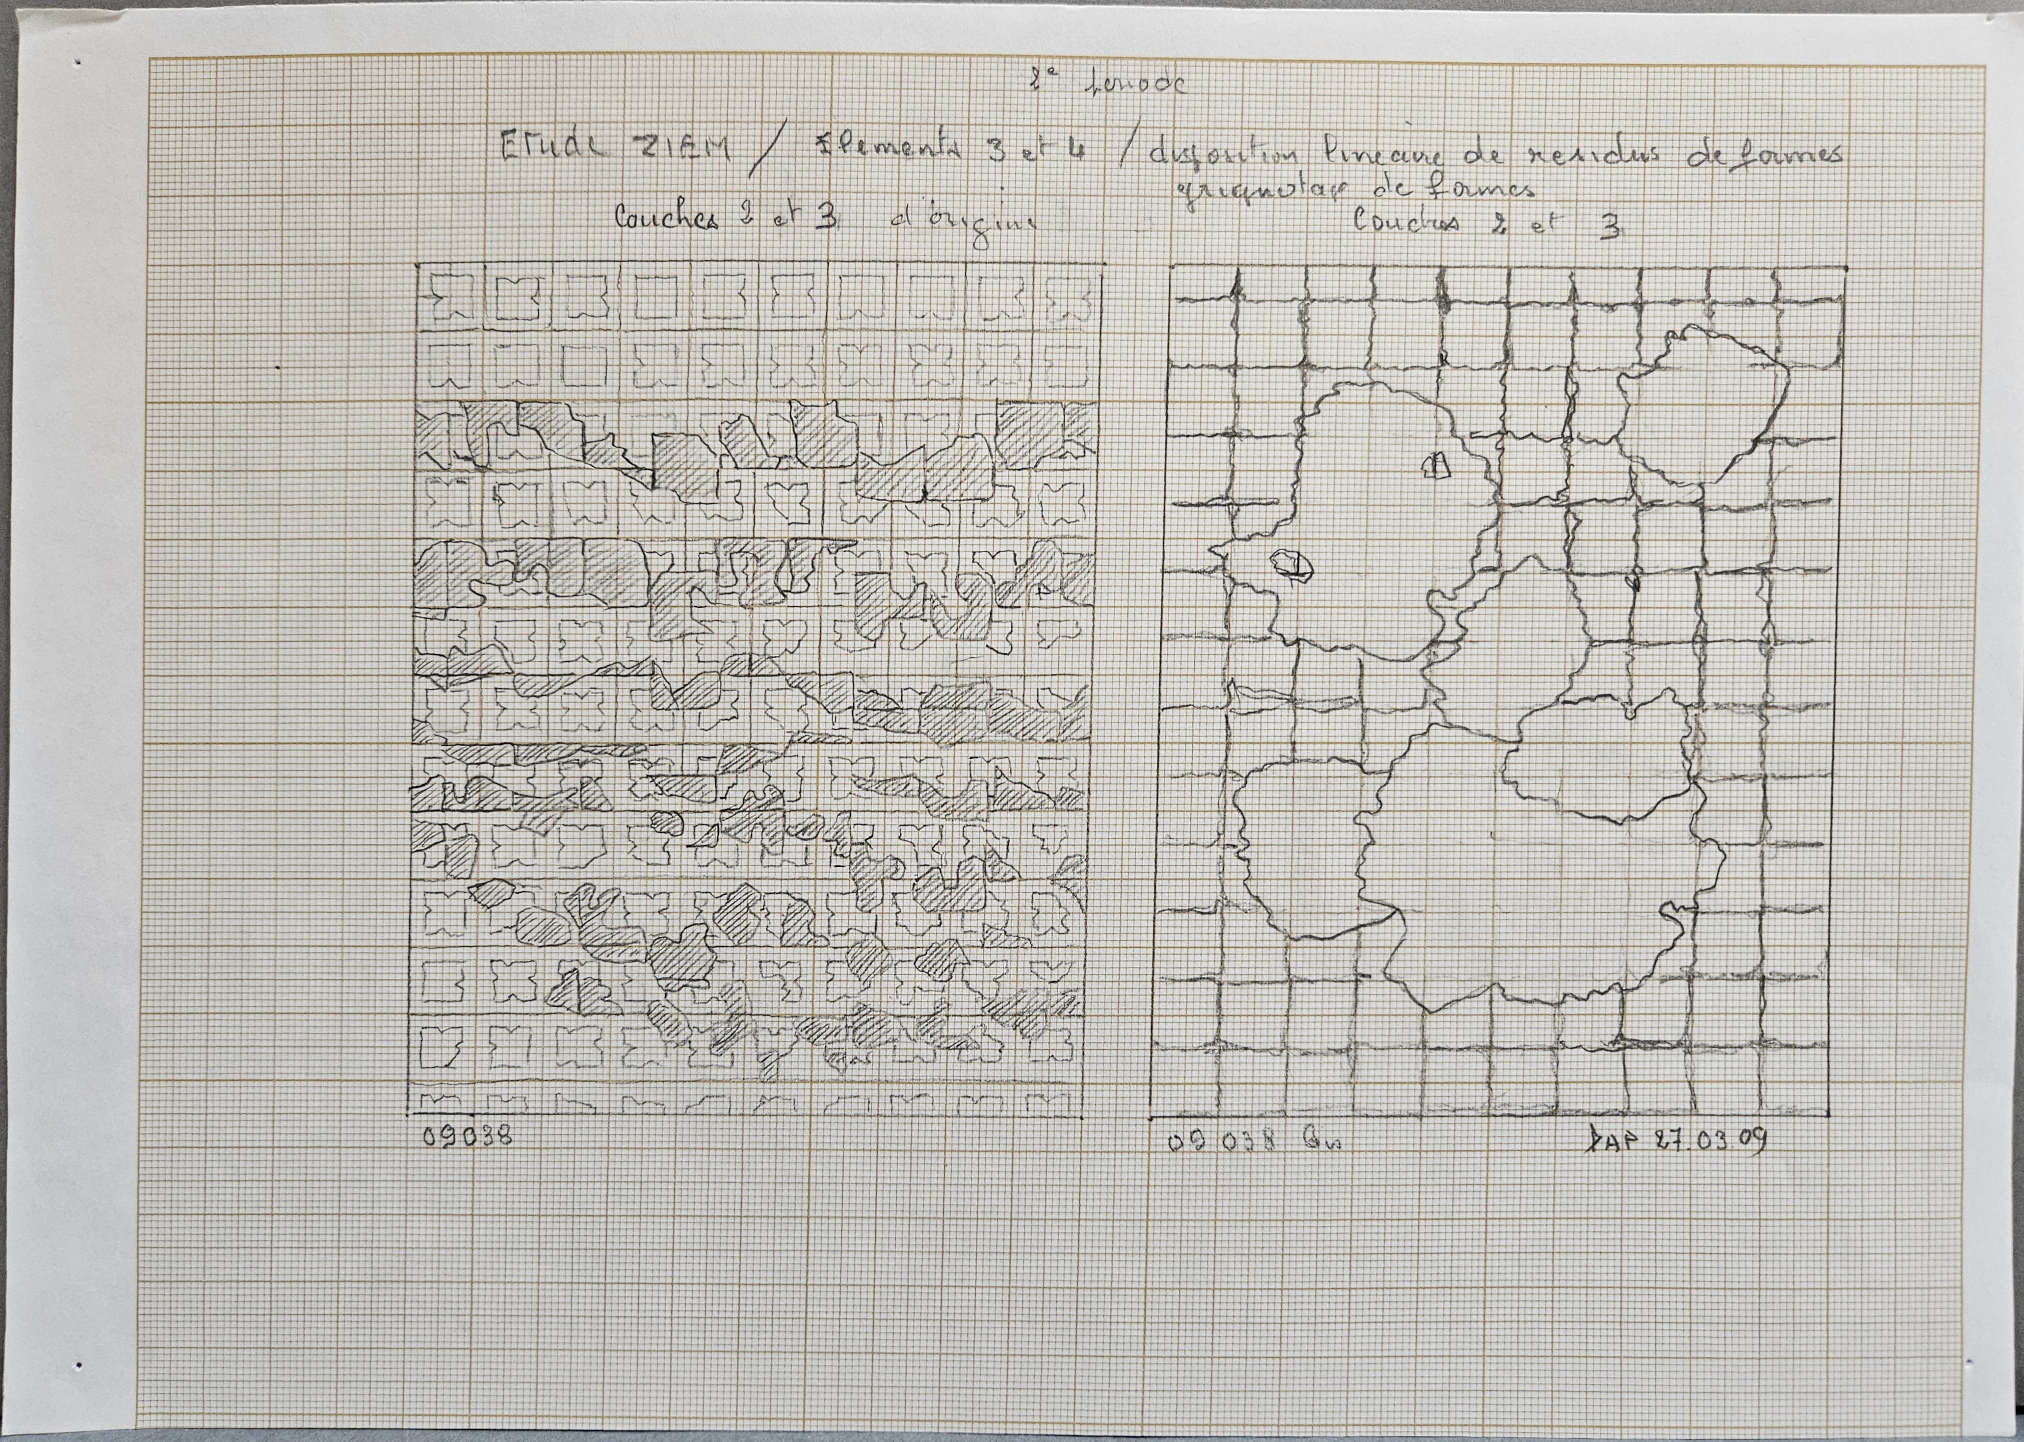 2e periode
Etude ZIEM / Elements 3 et 4 / disposition lineaire de residus de formes
grignotage de formes
Couches 2 et 3 d'origine
Couches 2 et 3
09038
09 038 Bis
DAP 27.03.09